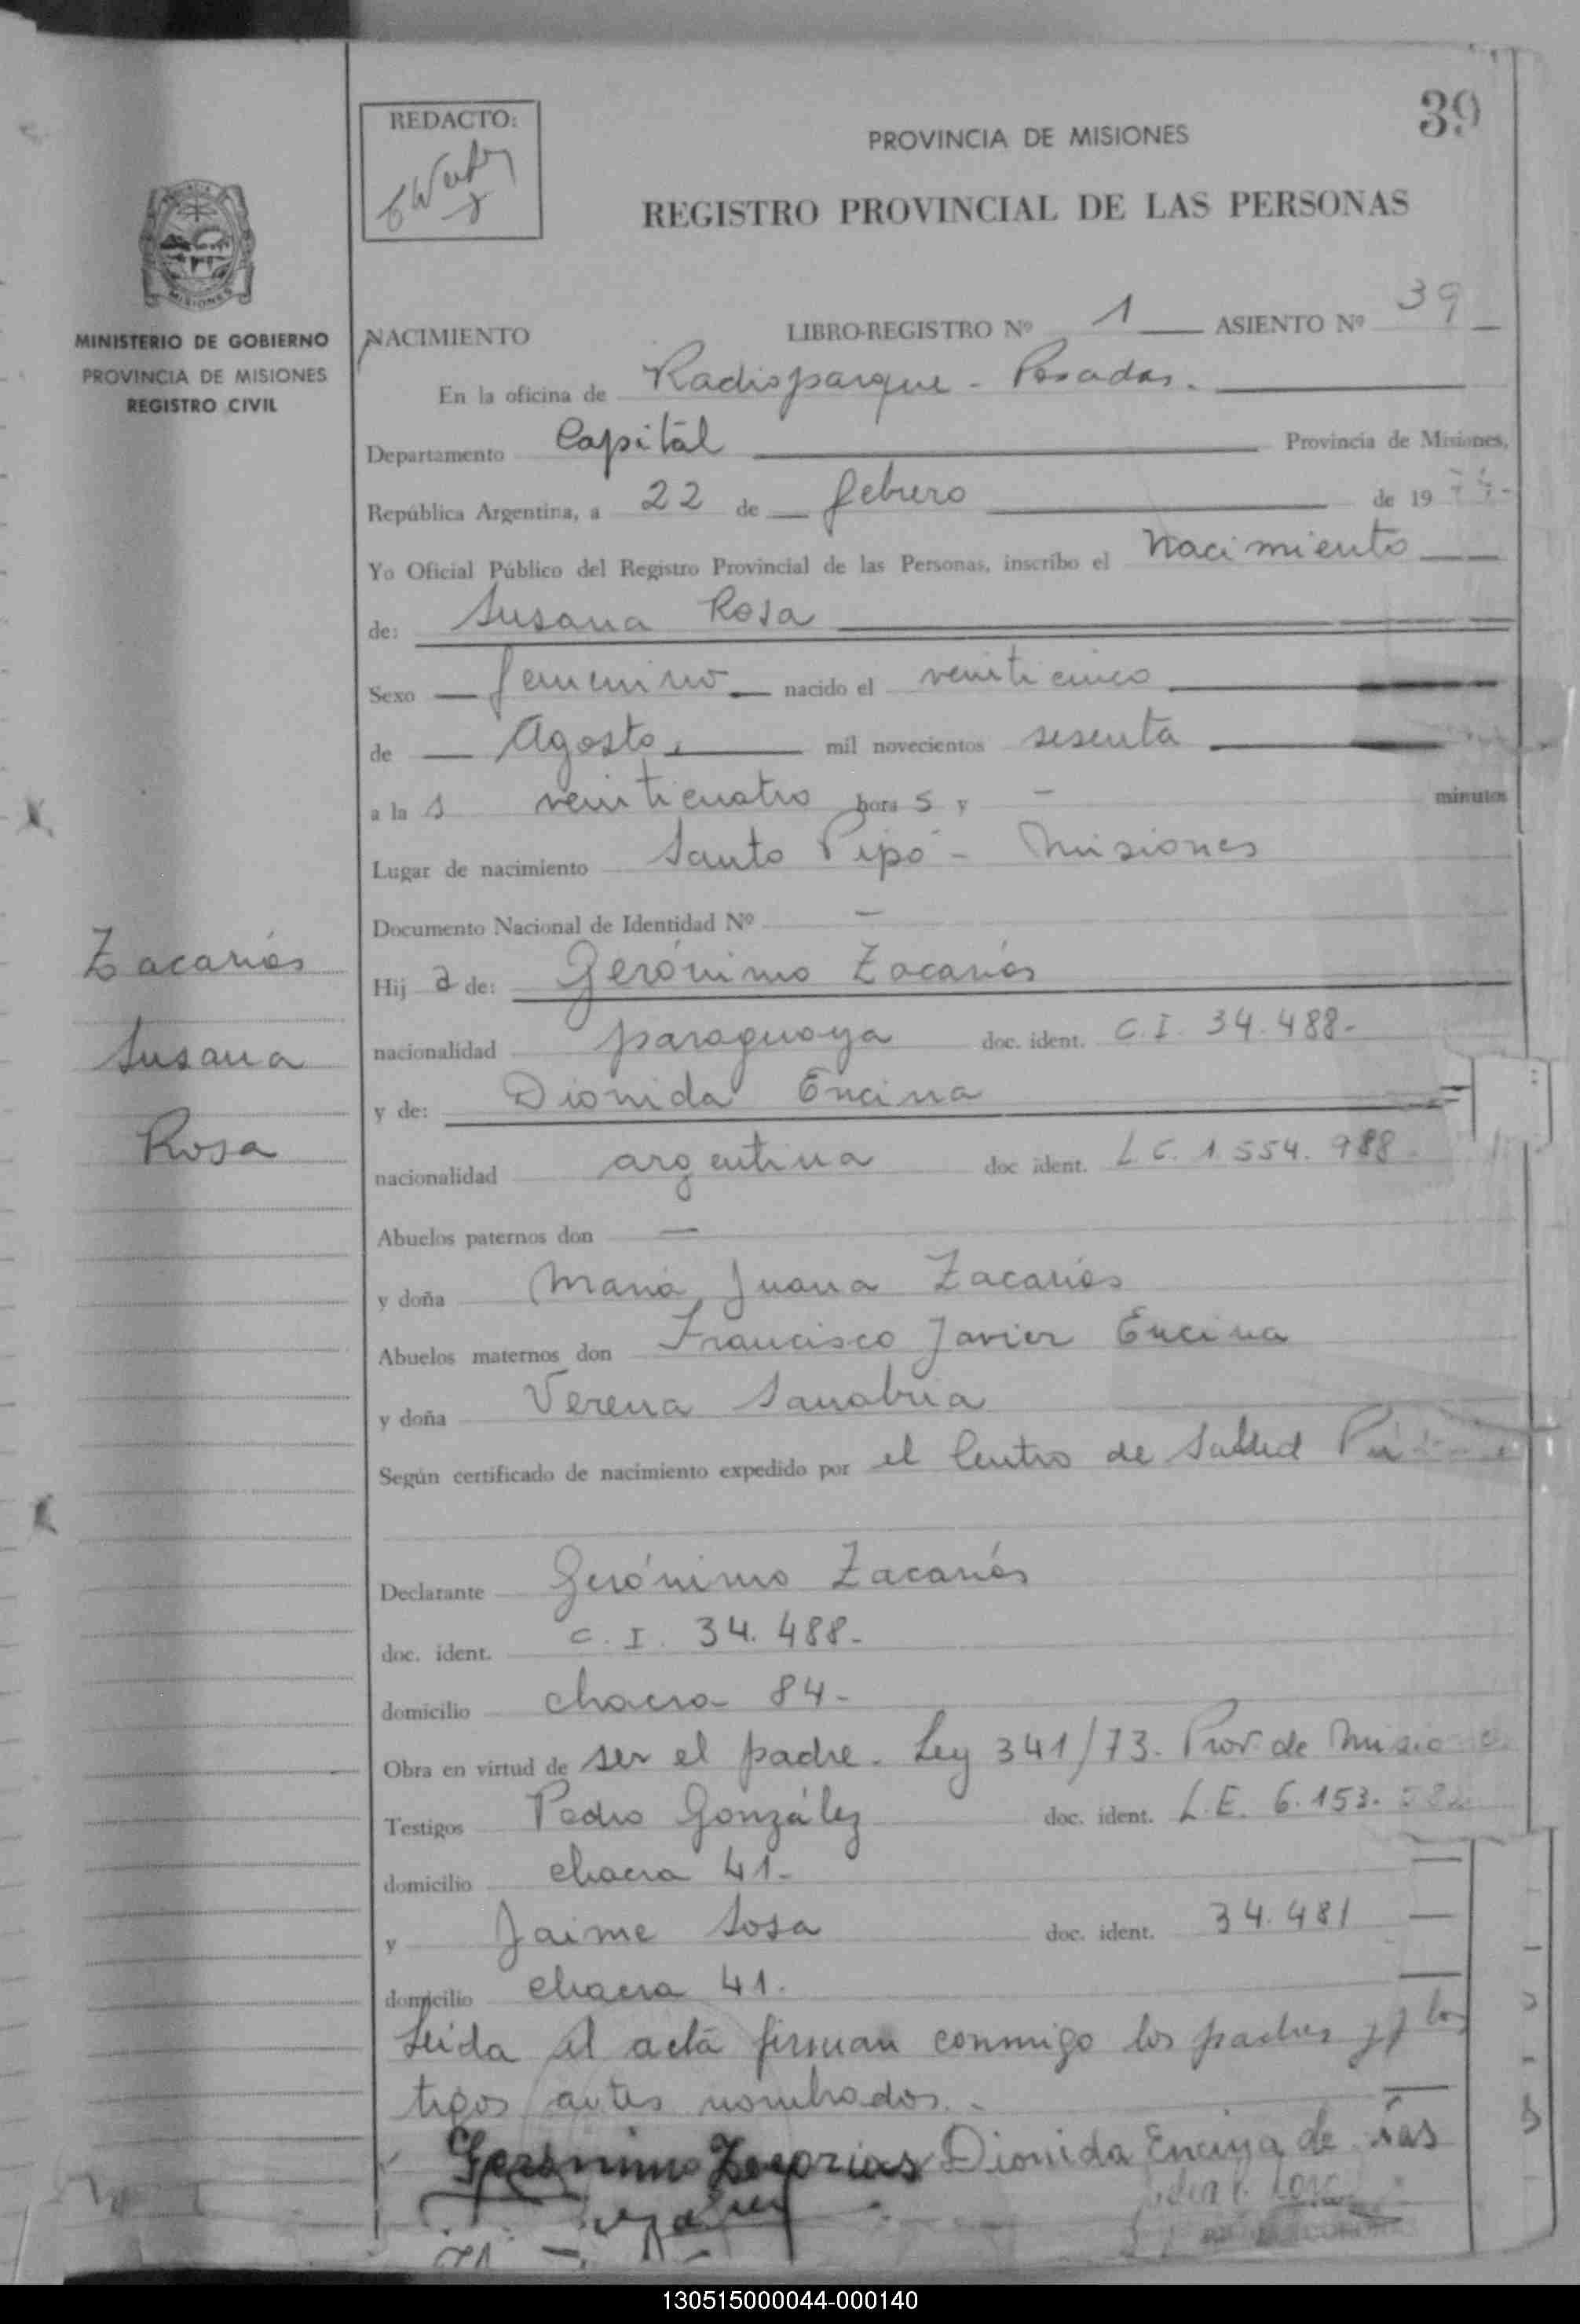 39
REDACTO:
PROVINCIA DE MISIONES
REGISTRO PROVINCIAL DE LAS PERSONAS
MISIONES
MINISTERIO DE GOBIERNO
PROVINCIA DE MISIONES
REGISTRO CIVIL
NACIMIENTO LIBRO-REGISTRO Nº 1 ASIENTO Nº 39
En la oficina de Radioparque - Posadas.
Departamento Capital Provincia de Misiones,
República Argentina, a 22 de febrero de 19
Yo Oficial Público del Registro Provincial de las Personas, inscribo el nacimiento
de: Susana Rosa
Sexo femenino nacido el veinticinco
de Agosto, mil novecientos sesenta
a la s veinticuatro hora s y - minutos
Lugar de nacimiento Santo Pipó - Misiones
Documento Nacional de Identidad Nº -
Zacarías
Susana
Rosa
Hij a de: Gerónimo Zacarías
nacionalidad paraguaya doc. ident. C.I. 34.488-
y de: Dionida Encina
nacionalidad argentina doc ident. L.C. 1.554.988
Abuelos paternos don —
y doña María Juana Zacarías
Abuelos maternos don Francisco Javier Encina
y doña Verena Sanabria
Según certificado de nacimiento expedido por el Centro de Salud
Declarante Gerónimo Zacarías
doc. ident. C.I. 34.488-
domicilio chacra 84-
Obra en virtud de ser el padre. Ley 341/73. Prov. de
Testigos Pedro González doc. ident. L.E. 6.153.
domicilio chacra 41-
y Jaime Sosa doc. ident. 34.481
domicilio chacra 41.
Leida el acta firman conmigo los padres y los
tigos antes nombrados.-
Geronimo Zacarias Dionida Encina de
130515000044-000140